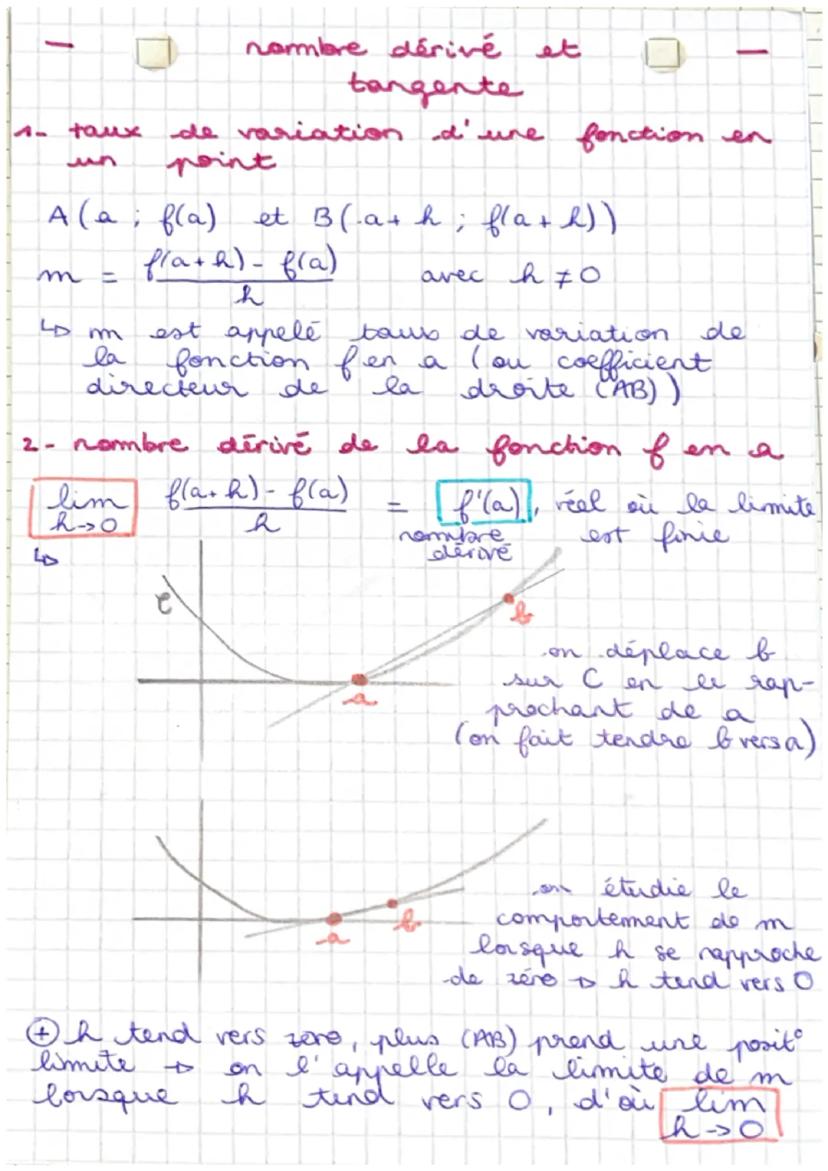 nombre dérivé et
tangente
1- taux de variation d'une fonction en
un point
A(a ; f(a) et B(a+h ; f(a+h))
m = f(a+h) - f(a) / h avec h ≠ 0
↳ m est appelé taux de variation de
la fonction f en a (ou coefficient
directeur de la droite (AB))
2- nombre dérivé de la fonction f en a
lim h→0 f(a+h) - f(a) / h = f'(a), réel où la limite
nombre dérivé est finie
↳
C
b
a
on déplace b
sur C en le rap-
prochant de a
(on fait tendre b vers a)
a
b
on étudie le
comportement de m
lorsque h se rapproche
de zéro → h tend vers 0
⊕ h tend vers zéro, plus (AB) prend une posit°
limite → on l'appelle la limite de m
lorsque h tend vers 0, d'où lim
h→0